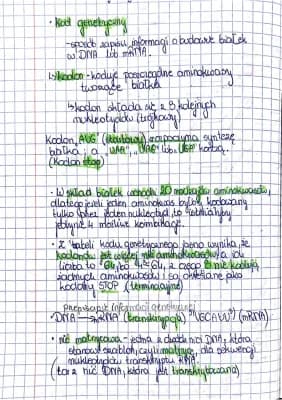 • Kod genetyczny
- sposób zapisu informacji o budowie białek
w DNA lub mRNA.
↳ kodon - koduje poszczególne aminokwasy
tworzące białka
↳ kodon składa się z 3 kolejnych
nukleotydów (trójkowy)
Kodon "AUG" (startowy) rozpoczyna syntezę
białka, a "UAA", "UAG" lub "UGA" kończą.
(kodon stop)
• W skład białek wchodzi 20 rodzajów aminokwasów,
dlatego jeżeli jeden aminokwas byłby kodowany
tylko przez jeden nukleotyd, to istniałyby
jedynie 4 możliwe kombinacje.
• Z tabeli kodu genetycznego jasno wynika, że
kodonów jest więcej niż aminokwasów, a ich
liczba to 64, bo 4³ = 64, z czego 3 nie kodują
żadnych aminokwasów i są określane jako
kodony STOP (terminacyjne)
Przepisanie informacji genetycznej
• DNA → RNA (transkrypcja) (mRNA)
• nić matrycowa - jedna z dwóch nici DNA, która
stanowi szablon, czyli matrycę, dla sekwencji
nukleotydów transkryptu RNA.
(to ta nić DNA, która jest transkrybowana)